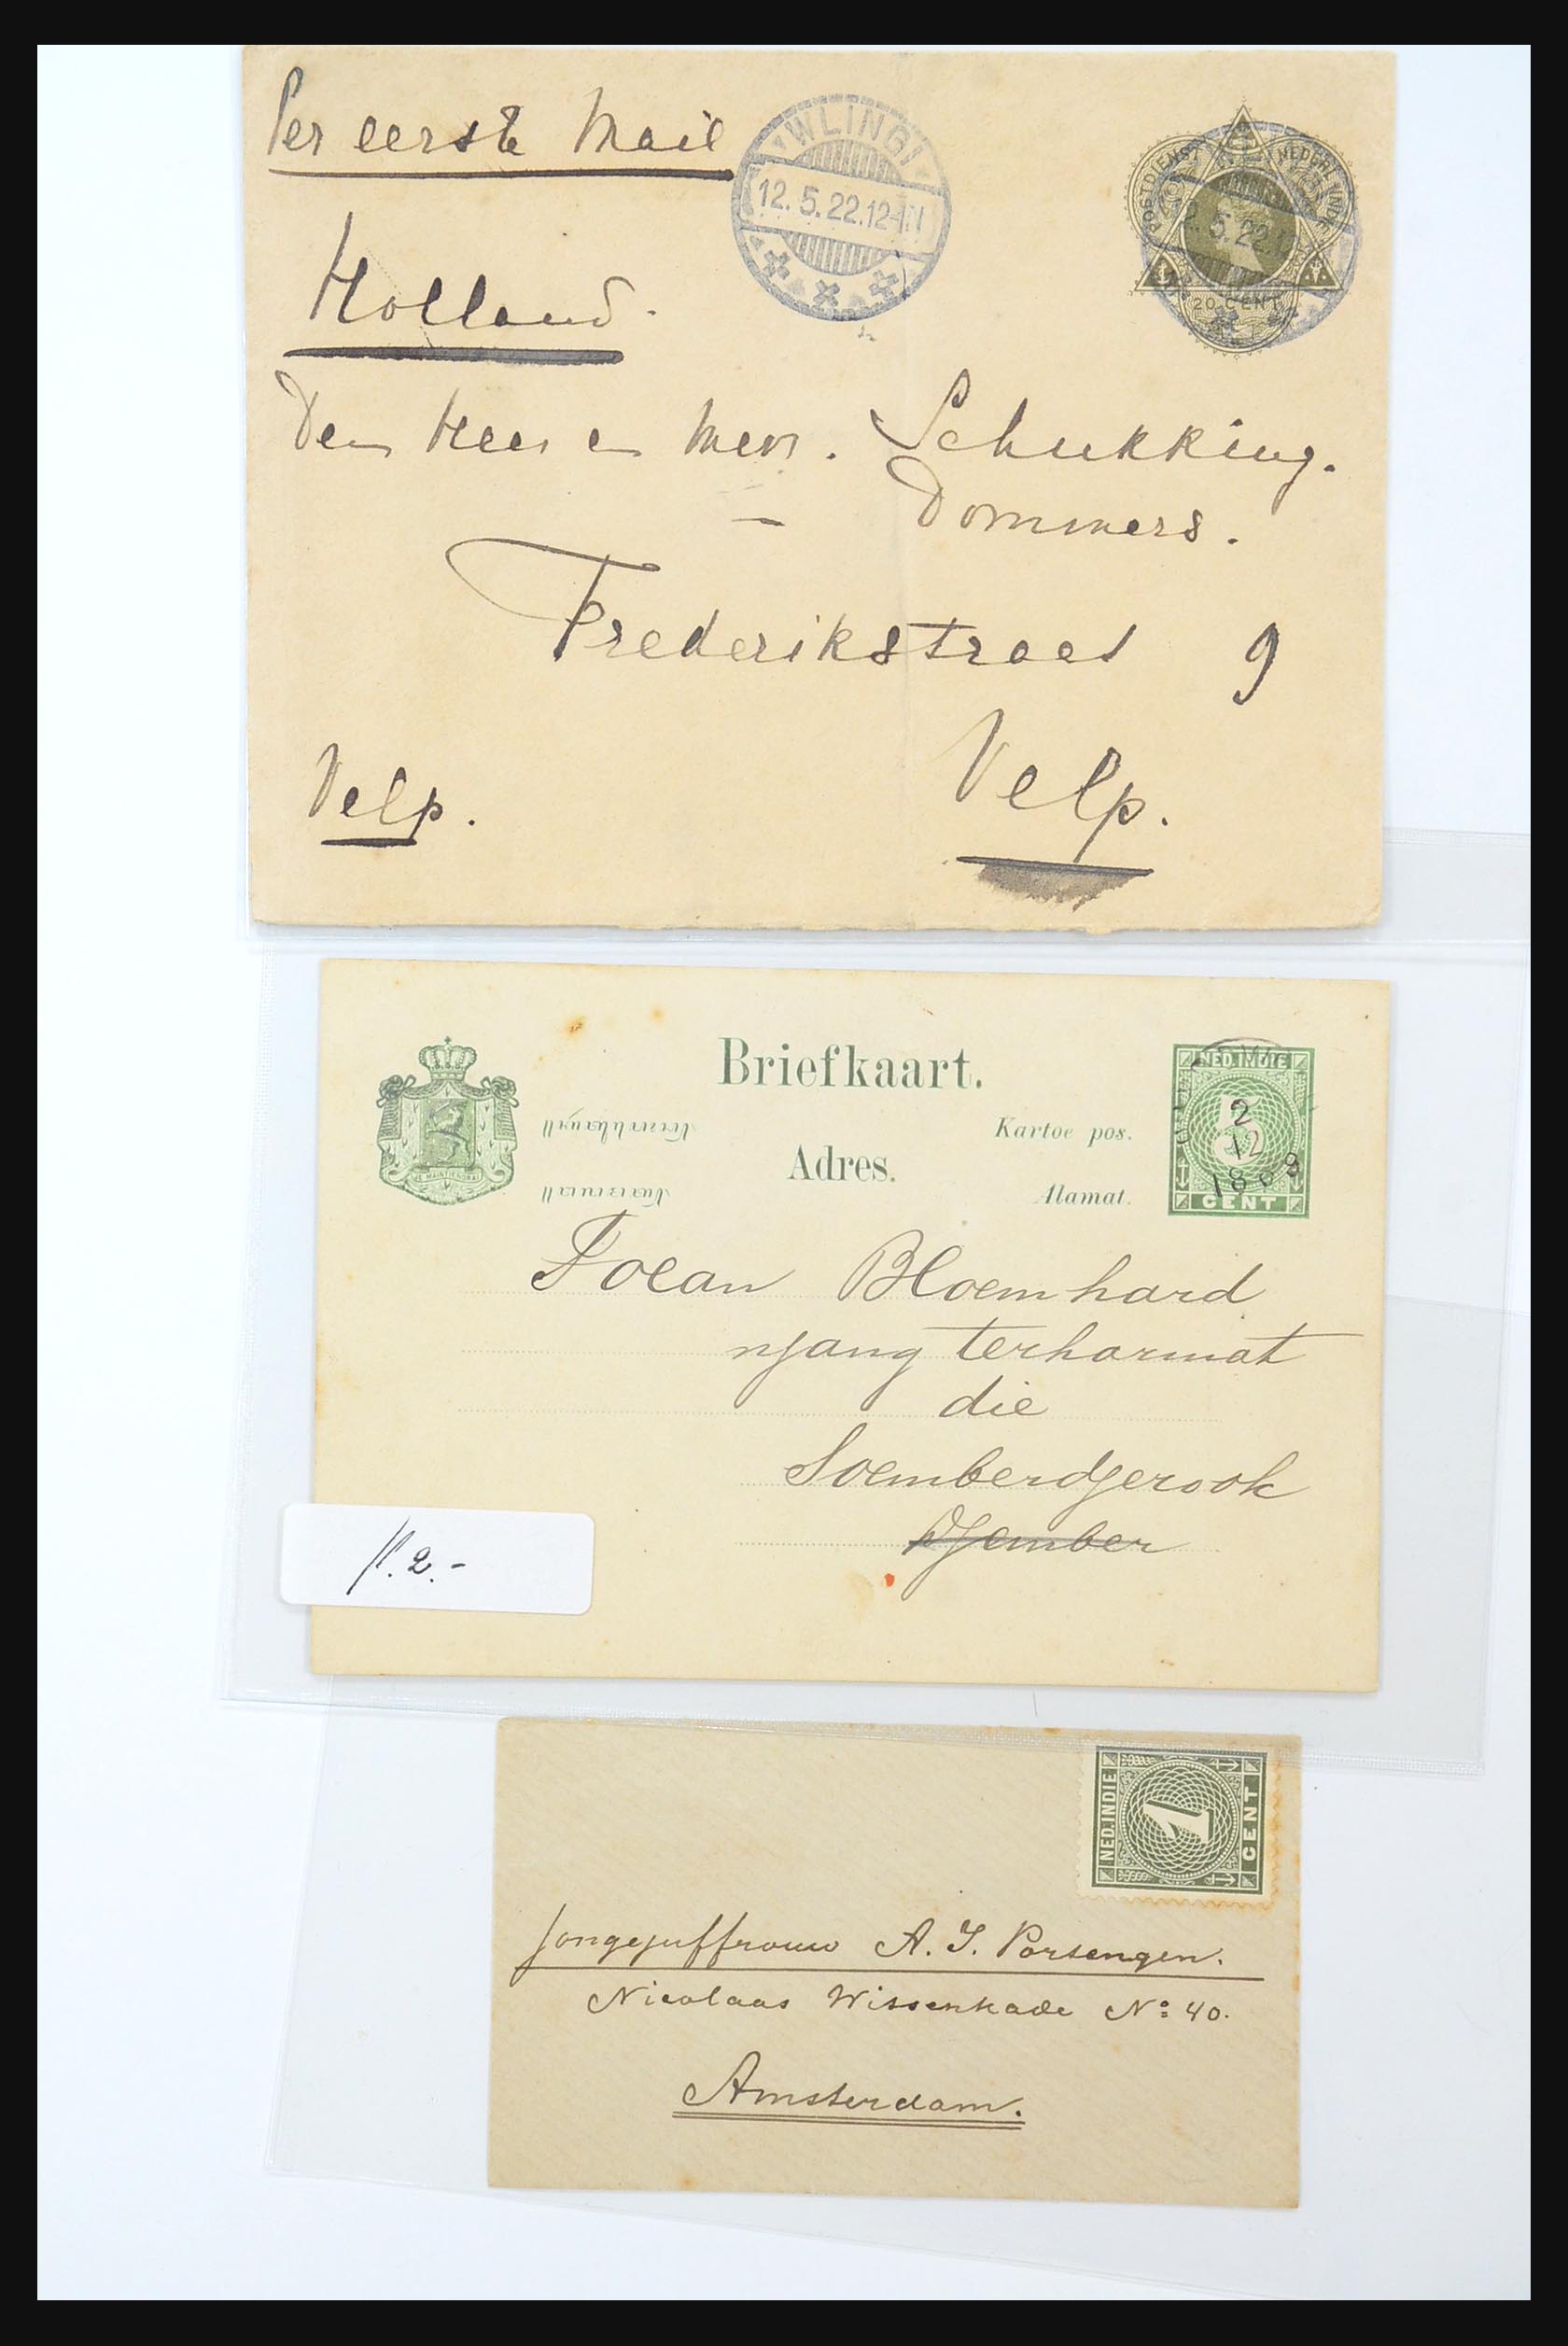 Per eerste Mail
WLINGI
12.5.22.12-1N
POSTDIENST NEDERL INDIE
2.5.22.12
20 CENT
Holland.
Den Heer en Mevr. Schukking.
— Dommers.
Frederikstraat 9
Velp.
Velp.
Briefkaart.
Kartoe pos.
Adres.
Alamat.
NED. INDIE
5
CENT
2
12
JE MAINTIENDRAI
Toean Bloemhard
njang terhormat
die
Soemberdjerook
Djember
fl. 2.-
NED. INDIE
1
CENT
Jongejuffrouw A. J. Portengen.
Nicolaas Witsenkade No: 40.
Amsterdam.